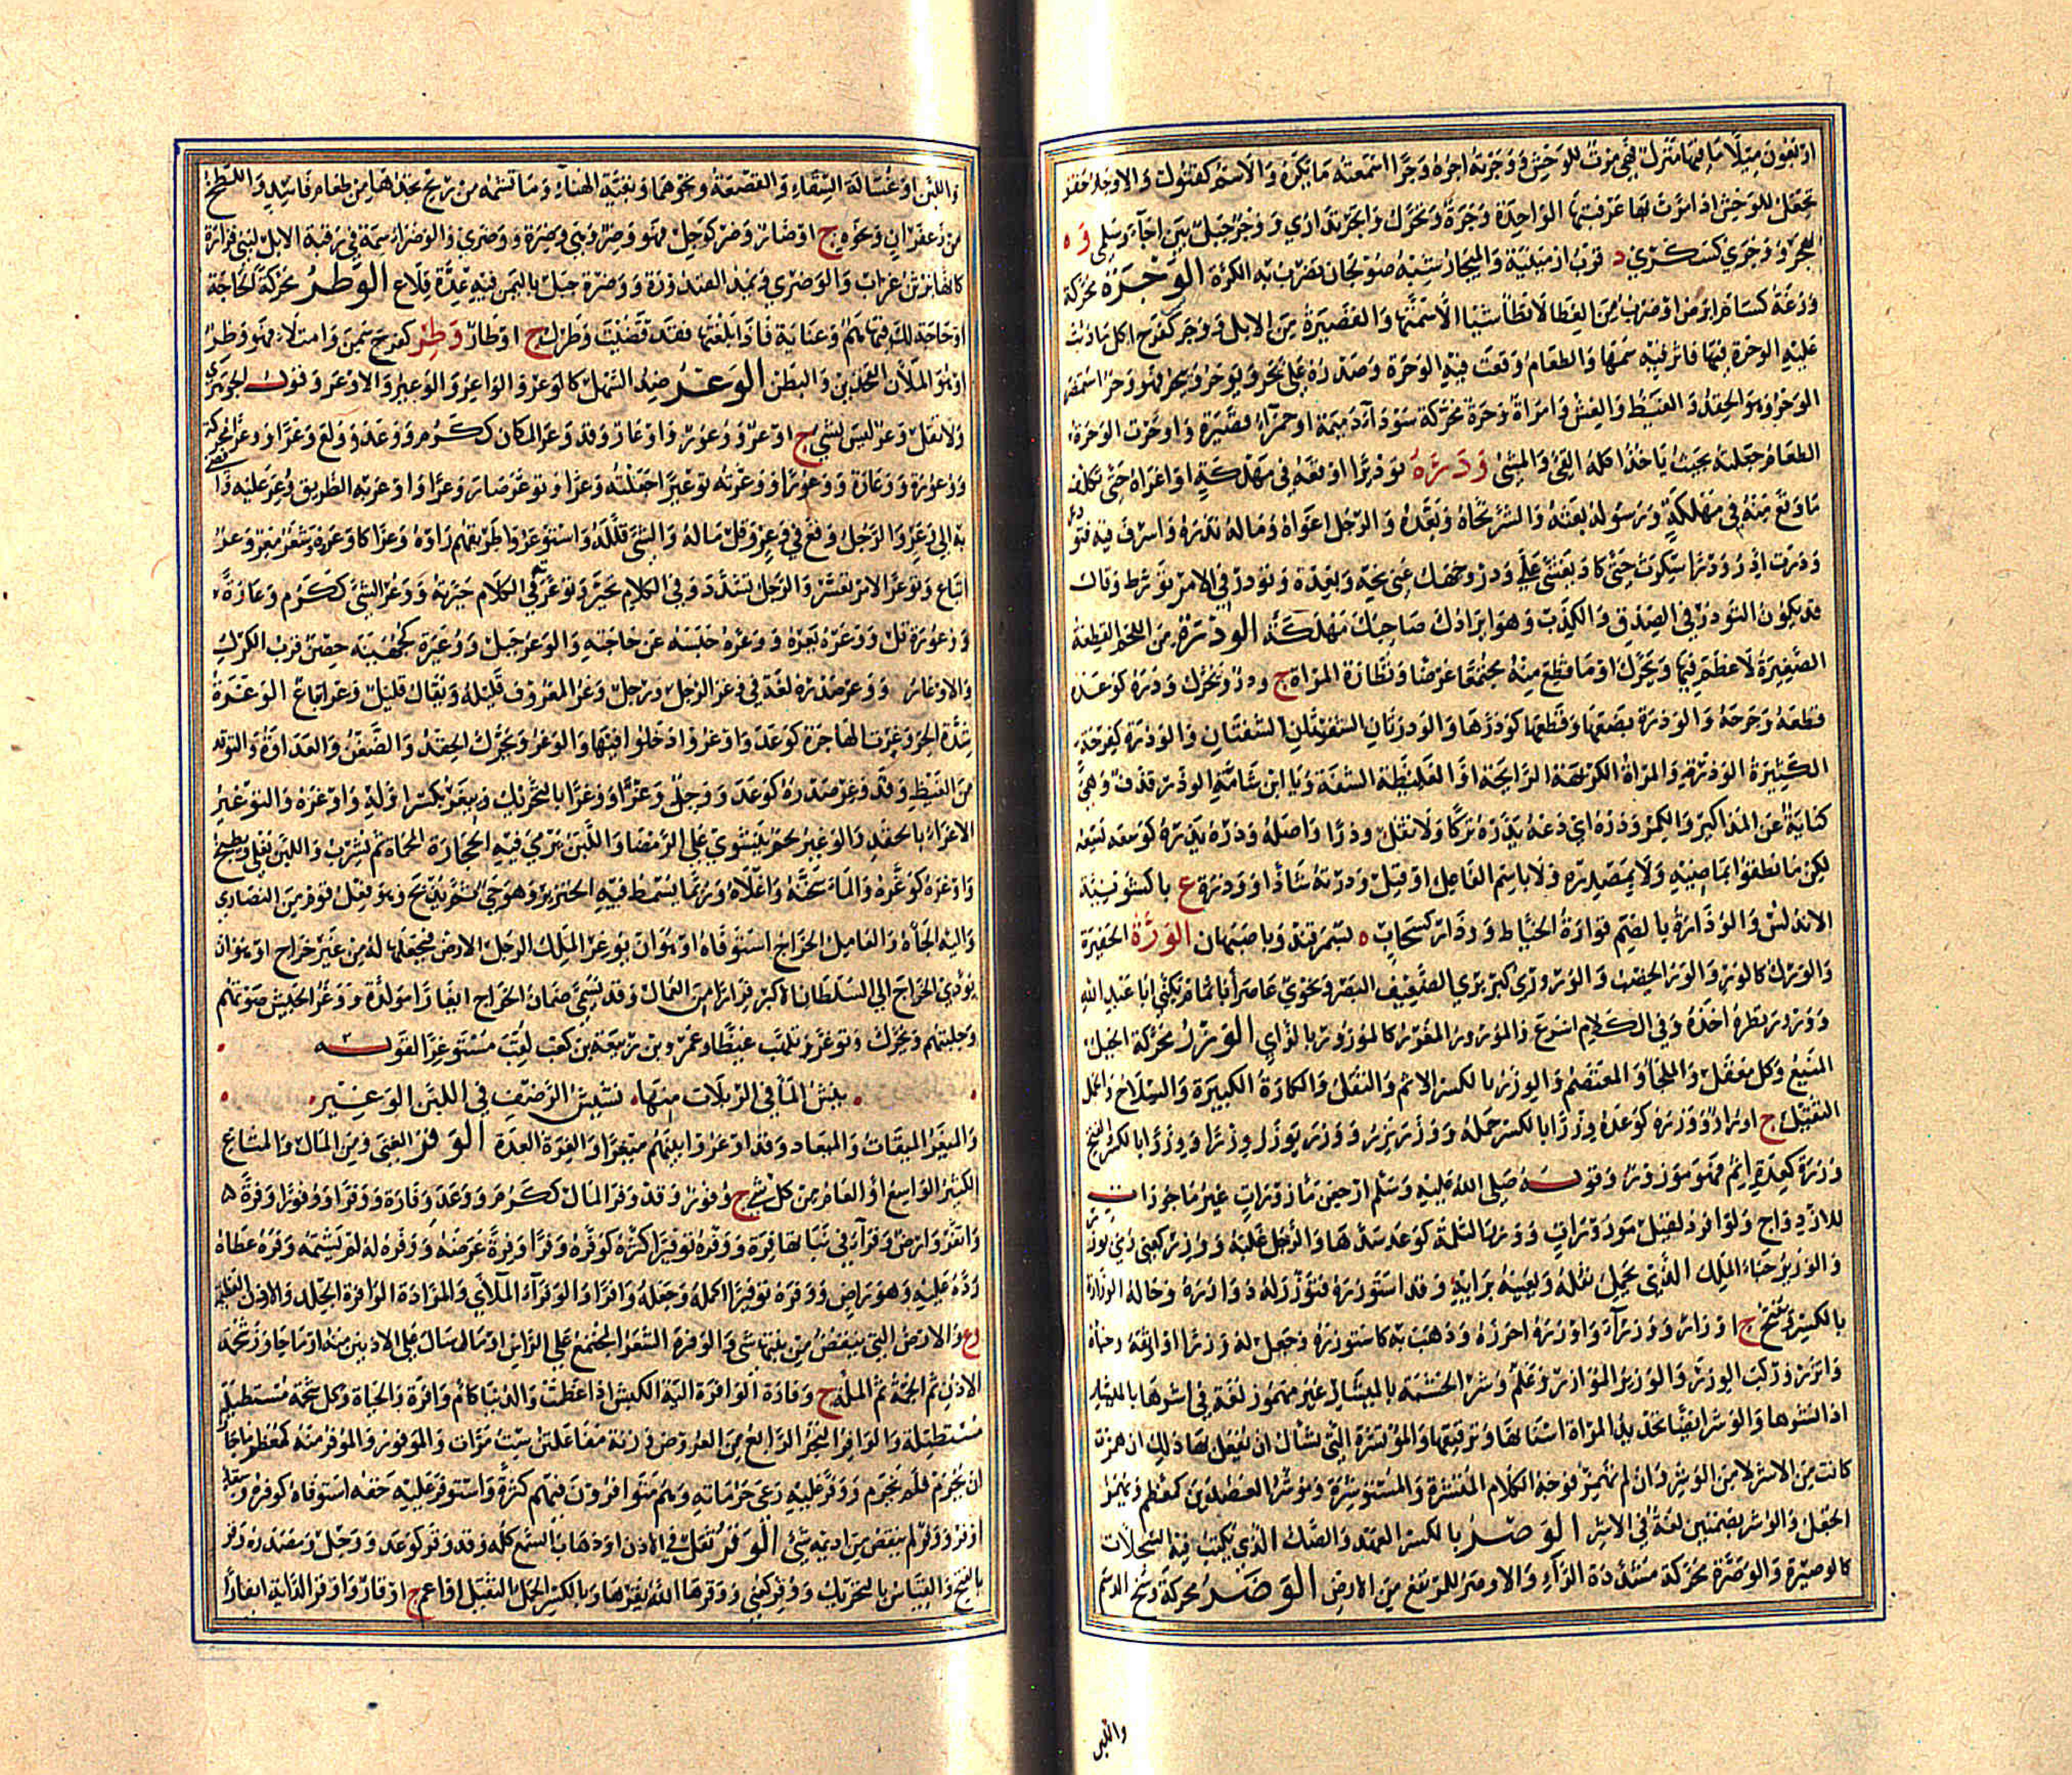 او تقون ميلا ما فيها منزل فهي مرت للوحش و وجرته اجره وجرا اسمعته ما يكره والاسم كقبول والاوجار حفر
تجعل للوحش اذا مرت بها عرقبتها الواحدة وجرة وتحرك وانجر تداوي و وجر جبل بين اجأ وسلمى و ه
بهجر و وجرى كسكرى د قرب ارمينية والميجار شبه صولجان تضرب به الكرة الوحرة محركة
وزغة كسام ابرص او ضرب من العظاء لا تطأ شيئا الا سمته والقصيرة من الابل و وحر كفرح اكل ما دبت
عليه الوحرة فيها فاثر فيه سمها والطعام وقعت فيه الوحرة وصدره علي يحر و يوحر و ييحر فهو وحر استضمر
الوحر وهو الحقد والغيظ والغش وامراة وحرة محركة سوداء دميمة او حمراء قصيرة واوحرت الوحرة
الطعام جعلته بحيث ياخذ اكله القيء والمشي ودره توديرا اوقعه في مهلكة او اغراه حتى تكلف
ما وقع منه في مهلكة ورسوله بعثه والشر نحاه وبعده والرجل اغواه وماله بذره واسرف فيه فتودر
و ودرت ادر ودرا سكرت حتى كاد يغشى علي ودر وجهك عني نحه وبعده وتودر في الامر تورط وقال
قد يكون التودر في الصدق والكذب وهو ايرادك صاحبك مهلكة الوذرة من اللحم القطعة
الصغيرة لا عظم فيها ويحرك او ما قطع منه مجتمعا عرضا وبظارة المراة ج وذر ويحرك وذره كوعده
قطعه وجرحه والوذرة بضعها وقطعها كوذرها والوذرتان الشفتان والوذرة كفرحة
الكثيرة الوذر والمراة الكريهة الرائحة او الغليظة الشفة ويا ابن شامة الوذر قذف وهي
كناية عن المذاكير والكمر وذره اي دعه يذره تركا ولا تقل وذرا واصله وذره يذره كوسعه يسعه
لكن ما نطقوا بماضيه ولا بمصدره ولا باسم الفاعل او قيل وذرته شاذا و وذرة ع باكشونية
الاندلس والوذارة بالضم قوارة الخياط و وذار كسحاب ه بسمرقند وباصبهان الورة الحفيرة
والورك كالور والور الخصب والورّ وري كبربري الضعيف البصر ونحوي عاصر أبا تمام يكنى ابا عبد الله
و ورور نظره احده وفي الكلام اسرع والمورور المغرر كالموزوز بالزاي الوزر محركة الجبل
المنيع وكل معقل والملجأ والمعتصم والوزر بالكسر الاثم والثقل والكارة الكبيرة والسلاح والحمل
الثقيل ج اوزار و وزره كوعده وزرا بالكسر حمله و وزر يزر و وزر يوزر وزرا و وزرا بالكسر والفتح
وزرة كعدة اثم فهو موزور وقوله صلى الله عليه وسلم ارجعن مأزورات غير ماجورات
للازدواج ولو افرد لقيل موزورات و وزر الثلمة كوعد سدها والرجل غلبه و وزر كعني رمي بوزر
والوزير حباء الملك الذي يحمل ثقله ويعينه برايه وقد استوزره فتوزر له و وازره وحاله الوزارة
بالكسر ويفتح ج اوزار و وزراء واوزره احرزه وذهب به كاستوزره وجعل له وزرا او اوثقه وخباه
واتزر ركب الوزر والوزير الموازر وعلم وشر الخشبة بالميشار غير مهموز لغة في اشرها بالمئشار
اذا نشرها والوشر ايضا تحديد المراة اسنانها وترقيقها والمؤتشرة التي تسأل ان يفعل بها ذلك ان همزت
كانت من الاشر لا من الوشر وان لم تهمز فوجه الكلام المتشرة والمستوشرة وموشر العضدين كمعظم ويهمز
الجعل والوشر بضمتين لغة في الاشر الوصر بالكسر العهد والصك الذي يكتب فيه السجلات
كالوصيرة والوصرة محركة مشددة الراء والاوصر المرتفع من الارض الوضر محركة وسخ الدسم
واللبن
واللبن او غسالة السقاء والقصعة ونحوهما وبقية الهناء وما تشمه من ريح تجدها من طعام فاسد واللطخ
من زعفران ونحوه ج اوضار وضر كوجل فهو وضر وهي وضرة و وضرى والوضراء سمة في رقبة الابل لبني فزارة
كانها برثن غراب والوضرى ويمد الفندورة و وضرة جبل باليمن فيه عدة قلاع الوطر محركة الحاجة
او حاجة لك فيها هم وعناية فاذا بلغتها فقد قضيت وطرك ج اوطار وطر كفرح سمن وامتلاء فهو وطر
او هو الملآن الفخذين والبطن الوعر ضد السهل كالوعر والواعر والوعير والاوعر وقول الجوهري
ولا تقل وعر ليس بشيء ج اوعر و وعور و اوعار وقد وعر المكان ككرم و وعد و ولع وعرا و وعرا محركة
و وعورة و وعارة و وعورا و وعرته توعيرا جعلته وعرا وتوعر صار وعرا واوعر به الطريق وعر عليه وافضى
به الى وعر والرجل وقع في وعر وقل ماله والشيء قلله واستوعروا طريقهم راوه وعرا كاوعروه وشعر معر وعر
اتباع وتوعر الامر تعسر والرجل تشدد وفي الكلام تحير وتوعره في الكلام حيرته و وعر الشيء ككرم وعارة
و وعورة قل و وعره يعره و وعره حبسه عن حاجته والوعر جبل و وعيرة كجهينة حصن قرب الكرك
والاوعار و وعر صدره لغة في وغر الرجل ورجل وعر المعروف قليله ويقال قليل وعر اتباع الوغرة
شدة الحر وغرت الهاجرة كوعد واوغروا دخلوا فيها والوغر ويحرك الحقد والضغن والعداوة والتوقد
من الغيظ وقد وغر صدره كوعد و وجل وغرا و وغرا بالتحريك ويغر بكسر اوله واوغره والتوغير
الاغراء بالحقد والوغير لحم يشوى على الرمضاء واللبن ترمى فيه الحجارة المحماة ثم يشرب واللبن يغلى ويطبخ
واوغره كوغره والماء سخنه واغلاه وربما يسمط فيه الخنزير وهو حي ثم يذبح وهو فعل قوم من النصارى
واليه الجأه والعامل الخراج استوفاه او هو ان يوغر الملك الرجل الارض فيجعلها له من غير خراج او هو ان
يؤدي الخراج الى السلطان الاكبر فرارا من العمال وقد يسمى ضمان الخراج ايغارا مولدة و وغر الجيش صوتهم
وجلبتهم ويحرك وتوغر تلهب غيظا وعمرو بن ربيعة بن كعب لقب مستوغرا لقوله
ينش الماء في الربلات منها نشيش الرضف في اللبن الوغير
والميغر الميقات والميعاد وقد اوغروا بينهم ميغرا والغرة العدة الوفر الغنى ومن المال والمتاع
الكثير الواسع او العام من كل شيء ج وفور وقد وفر المال ككرم و وعد وفارة و وفرا و وفورا وفرة
واتفر وارض وفراء في نباتها فرة و وفره توفيرا كثره كوفره وفرا وفرة وعرضه و وفره له لم يشتمه وفره عطاه
رده عليه وهو راض و وفره توفيرا اكمله وجعله وافرا والوفراء الملآى والمزادة الوافرة الجلد والاذن العظيمة
ع والارض التي ينقص من نبتها شيء والوفرة الشعر المجتمع على الراس او ما سال على الاذنين منه او ما جاوز شحمة
الاذن ثم الجمة ثم اللمة ج وفار والوافرة الية الكبش اذا عظمت والدنيا كام وافرة والحياة وكل شحمة مستطيلة
مستطيلة والوافر البحر الرابع من العروض وزنه مفاعلتن ست مرات والموفور والموفر منه كمعظم ما جاز
ان يخرم فلم يخرم و وفر عليه رعى حرماته وهم متوافرون فيهم كثرة واستوفر عليه حقه استوفاه كوفره وسقاء
اوفر و وفر لم ينقص من اديمه شيء الوقر ثقل في الاذن او ذهاب السمع كله وقد وقر كوعد و وجل ومصدره وقر
بالفتح والقياس بالتحريك و وقر كعني و وقرها الله يقرها وبالكسر الحمل الثقيل او اعم ج اوقار واوقر الدابة ايقارا